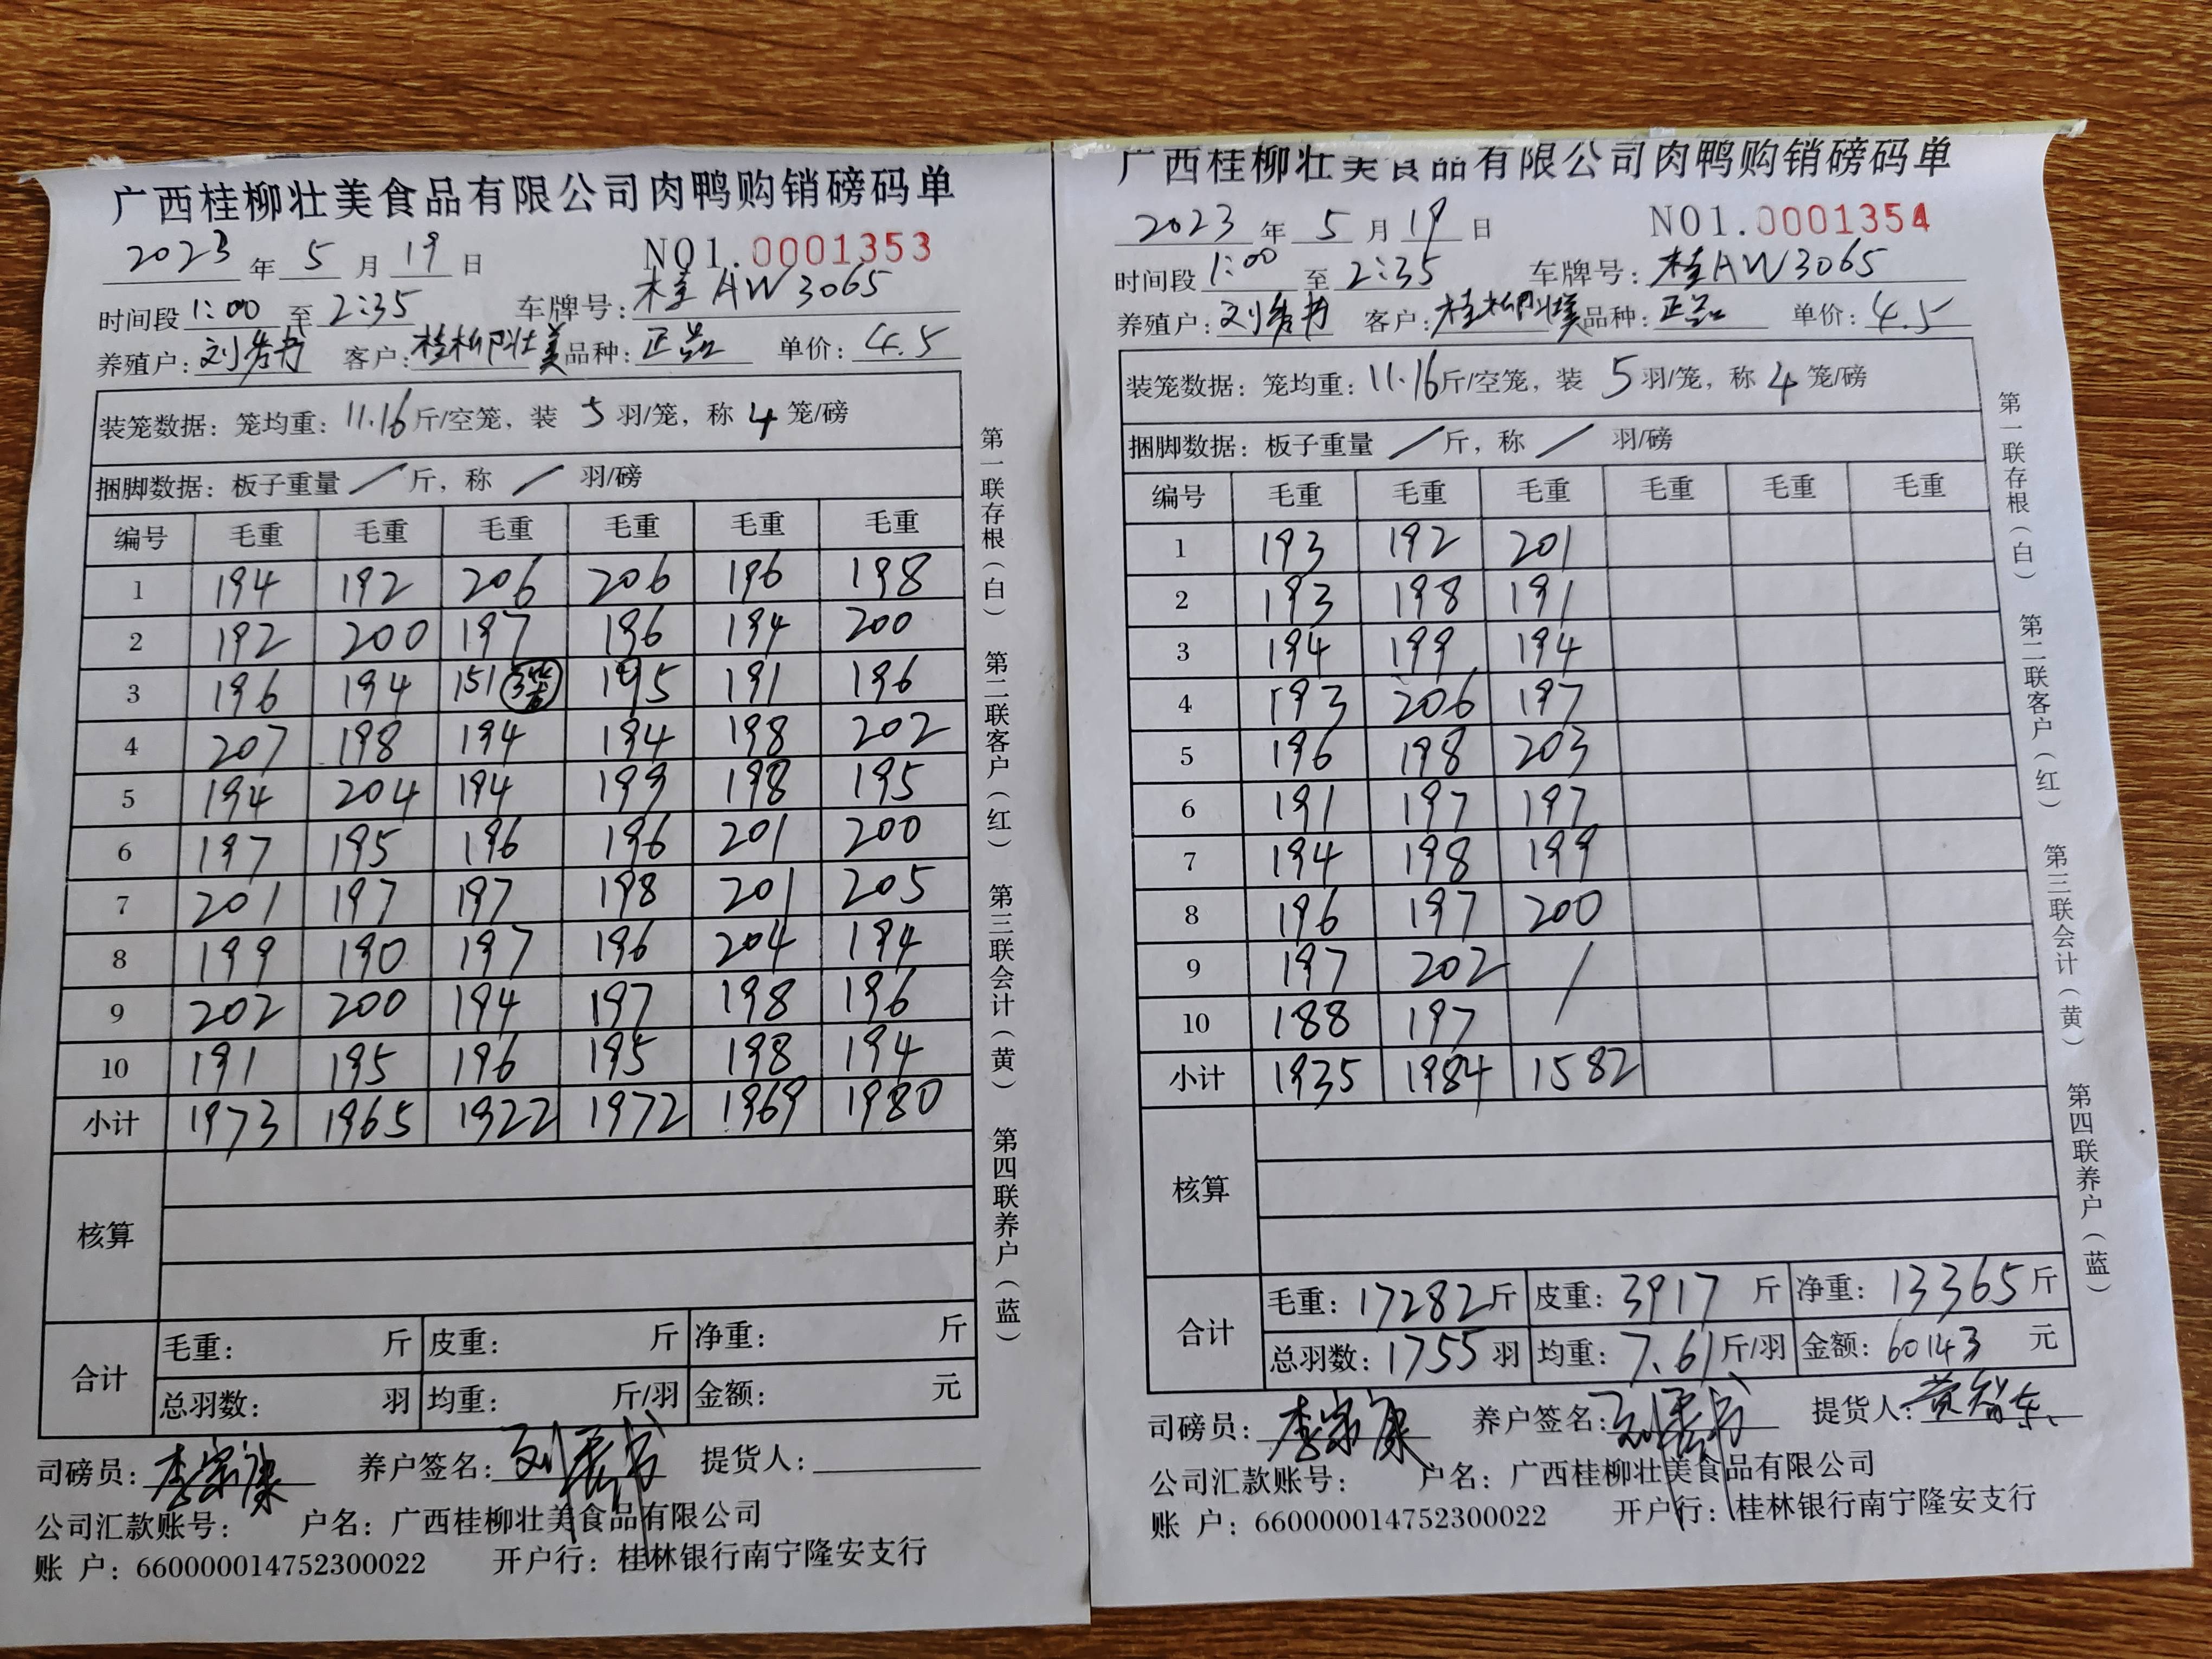 广西桂柳壮美食品有限公司肉鸭购销磅码单
2023 年 5 月 19 日 NO1.0001353
时间段 1:00 至 2:35 车牌号: 桂AW3065
养殖户: 客户: 桂柳壮美 品种: 正品 单价: 4.5
装笼数据: 笼均重: 11.16 斤/空笼, 装 5 羽/笼, 称 4 笼/磅
捆脚数据: 板子重量 / 斤, 称 / 羽/磅
编号 毛重 毛重 毛重 毛重 毛重 毛重
1 194 192 206 206 196 198
2 192 200 197 196 194 200
3 196 194 151 195 191 196
4 207 198 194 194 198 202
5 194 204 194 199 198 195
6 197 195 196 196 201 200
7 201 197 197 198 201 205
8 199 190 197 196 204 194
9 202 200 194 197 198 196
10 191 195 196 195 198 194
小计 1973 1965 1922 1972 1969 1980
核算
合计
毛重: 斤 皮重: 斤 净重: 斤
总羽数: 羽 均重: 斤/羽 金额: 元
司磅员: 李宗康 养户签名: 提货人:
公司汇款账号: 户名: 广西桂柳壮美食品有限公司
账 户: 660000014752300022 开户行: 桂林银行南宁隆安支行
第一联存根(白) 第二联客户(红) 第三联会计(黄) 第四联养户(蓝)
广西桂柳壮美食品有限公司肉鸭购销磅码单
2023 年 5 月 19 日 NO1.0001354
时间段 1:00 至 2:35 车牌号: 桂AW3065
养殖户: 客户: 桂柳壮美 品种: 正品 单价: 4.5
装笼数据: 笼均重: 11.16 斤/空笼, 装 5 羽/笼, 称 4 笼/磅
捆脚数据: 板子重量 / 斤, 称 / 羽/磅
编号 毛重 毛重 毛重 毛重 毛重 毛重
1 193 192 201
2 193 198 191
3 194 199 194
4 193 206 197
5 196 198 203
6 191 197 197
7 194 198 199
8 196 197 200
9 197 202 /
10 188 197
小计 1935 1984 1582
核算
合计
毛重: 17282 斤 皮重: 3917 斤 净重: 13365 斤
总羽数: 1755 羽 均重: 7.61 斤/羽 金额: 60143 元
司磅员: 李宗康 养户签名: 提货人: 黄智东
公司汇款账号: 户名: 广西桂柳壮美食品有限公司
账 户: 660000014752300022 开户行: 桂林银行南宁隆安支行
第一联存根(白) 第二联客户(红) 第三联会计(黄) 第四联养户(蓝)